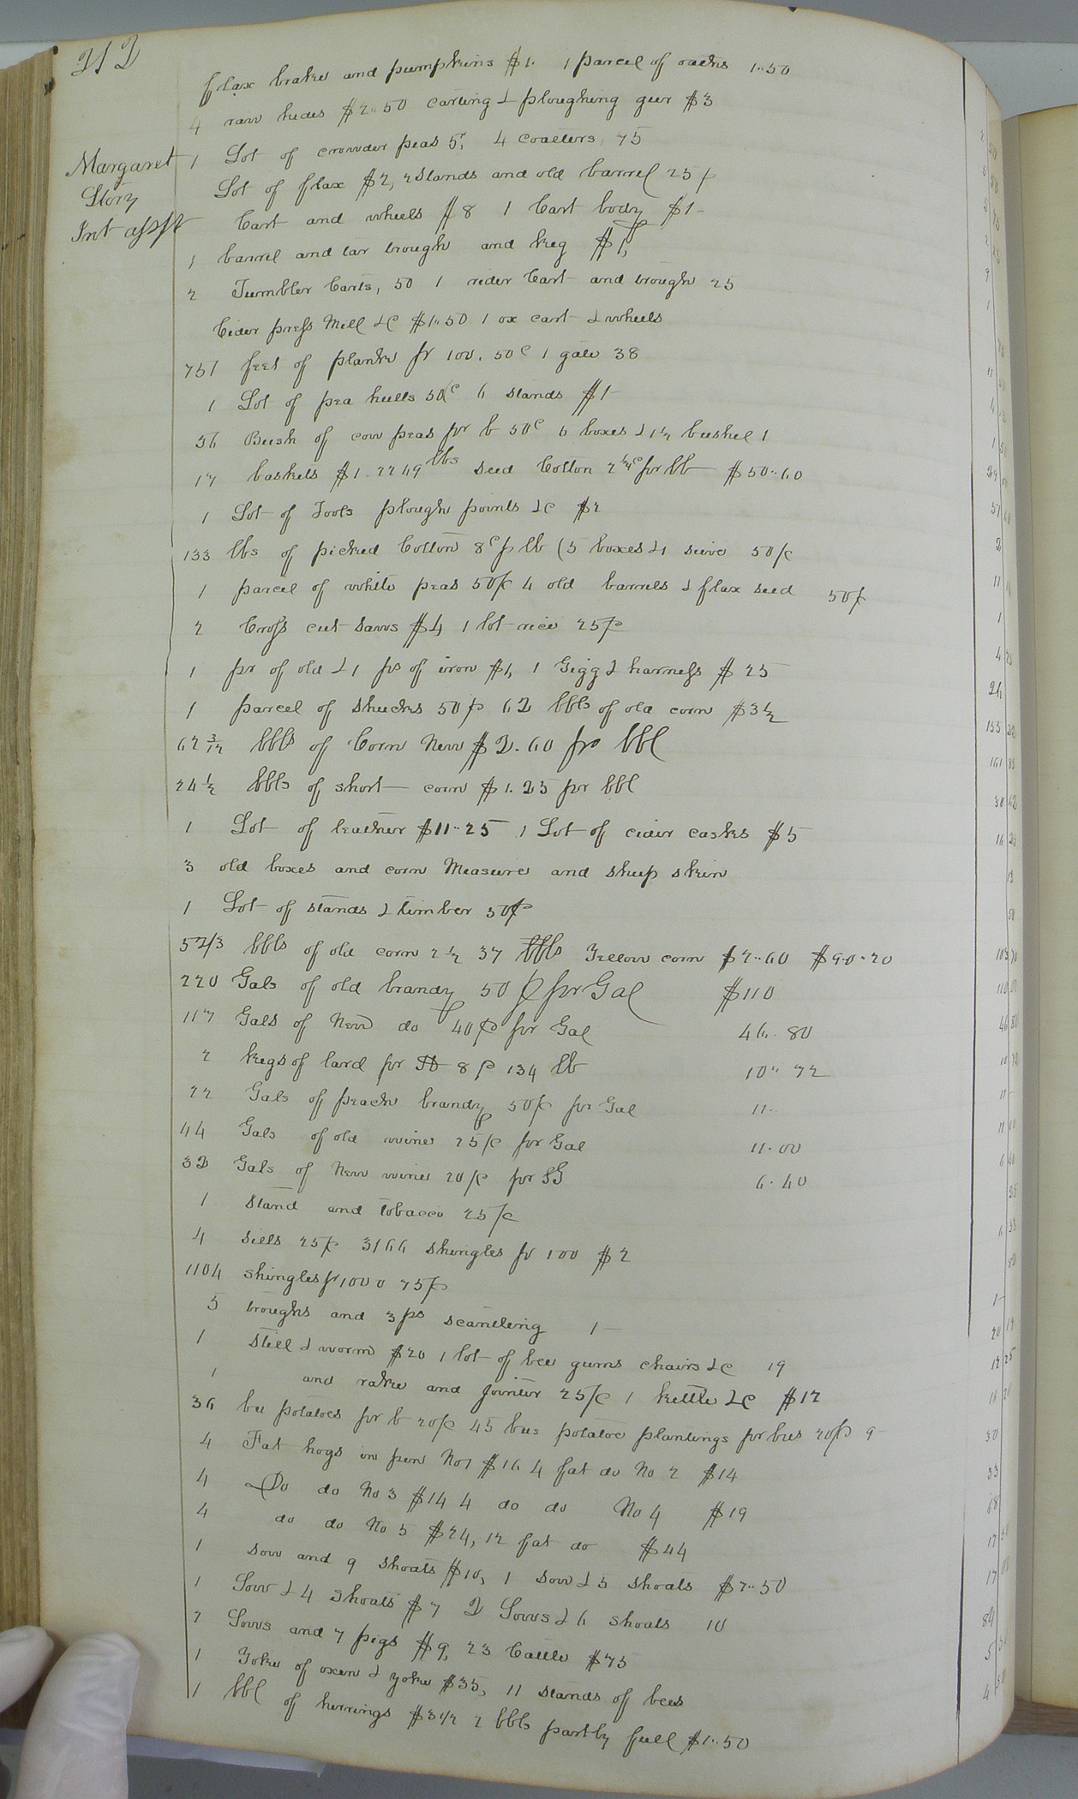 212
flax brake and pumpkins $1. 1 parcel of racks 1..50
4 raw hides $2..50 carting & ploughing geer $3
Margaret
Story
Int appt
1 Lot of crowder peas 5, 4 coalters, 75
Lot of flax $2, 2 Stands and old barrel 25 p
Cart and wheels $8 1 Cart body $1-
1 barrel and tar trough and keg $1,
2 Tumbler Carts, 50 1 rider Cart and trough 25
Cider press Mill &c $1..50 1 ox cart & wheels
751 feet of planke pr 100. 50c 1 gate 38
1 Lot of pea hulls 50c 6 stands $1-
56 Bush of cow peas pr b 50c 6 boxes & 1 1/2 bushel 1
17 baskets $1. 2249 lbs seed Cotton 2 1/4c pr lb $50..60
1 Lot of Tools plough points &c $2
133 lbs of picked Cotton 8c p lb (5 boxes & 1 sieve 50/c
1 parcel of white peas 50/c 4 old barrels & flax seed 50/c
2 Cross cut saws $4 1 lot rice 25/c
1 pr of old & 1 ps of iron $1, 1 Gigg & harness $25
1 parcel of shucks 50 p 62 bbls of old corn $3 1/2
62 3/12 bbls of Corn New $2.60 pr bbl
24 1/2 bbls of short corn $1.25 pr bbl
1 Lot of leather $11..25 1 Lot of cider casks $5
3 old boxes and corn Measure and sheep skin
1 Lot of stands & timber 50 p
5 2/3 bbls of old corn 2 1/2 37 bbls Yellow corn $2..60 $90.20
220 Gals of old brandy 50 p pr Gal $110
117 Gals of New do 40 p pr Gal 46.80
2 kegs of lard pr lb 8 p 134 lb 10.. 72
22 Gals of peach brandy 50/c pr Gal 11..
44 Gals of old wine 25/c pr Gal 11.00
32 Gals of New wine 20/c pr G 6.40
1 stand and tobacco 25/c
4 sills 25/c 3166 shingles pr 100 $2
1104 shingles pr 1000 75 p
5 troughs and 3 ps scantling 1-
1 Still & worm $20 1 lot of bee gums chairs &c 19
1 and rake and jointer 25/c 1 kettle &c $12
36 bu potatoes pr b 20/c 45 bus potatoe plantings pr bus 20/c 9-
4 Fat hogs in pen No 1 $16 4 fat do No 2 $14
4 Do do No 3 $14 4 do do No 4 $19
4 do do No 5 $24, 12 fat do $44
1 sow and 9 shoats $10, 1 sow & 5 shoats $7..50
1 Sow & 4 Shoats $7 2 Sows & 6 shoats 10
2 Sows and 7 pigs $9, 23 Cattle $75
1 Yoke of oxen & yoke $35, 11 stands of bees
1 bbl of herrings $3 1/2 2 bbls partly full $1..50